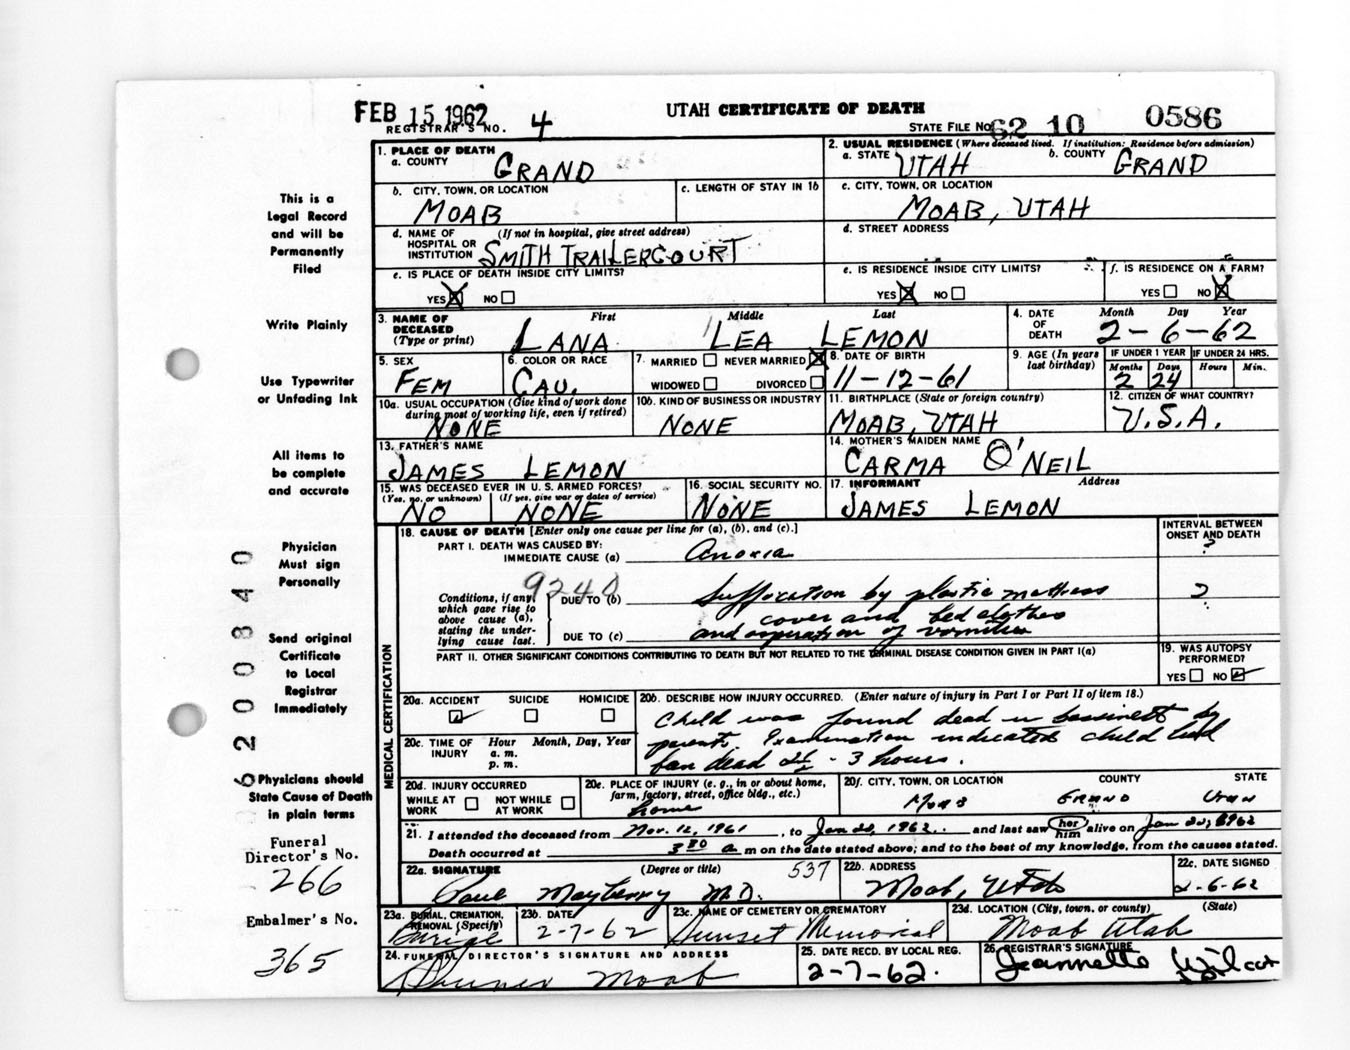 FEB 15 1962
UTAH CERTIFICATE OF DEATH
REGISTRAR'S NO. 4
STATE FILE NO. 62 10 0586
This is a
Legal Record
and will be
Permanently
Filed
Write Plainly
Use Typewriter
or Unfading Ink
All items to
be complete
and accurate
Physician
Must sign
Personally
Send original
Certificate
to Local
Registrar
Immediately
Physicians should
State Cause of Death
in plain terms
Funeral
Director's No.
266
Embalmer's No.
365
6200840
1. PLACE OF DEATH
a. COUNTY GRAND
2. USUAL RESIDENCE (Where deceased lived. If institution: Residence before admission)
a. STATE UTAH b. COUNTY GRAND
b. CITY, TOWN, OR LOCATION MOAB
c. LENGTH OF STAY IN 1b
c. CITY, TOWN, OR LOCATION
MOAB, UTAH
d. NAME OF (If not in hospital, give street address)
HOSPITAL OR
INSTITUTION SMITH TRAILERCOURT
d. STREET ADDRESS
e. IS PLACE OF DEATH INSIDE CITY LIMITS?
YES X NO
e. IS RESIDENCE INSIDE CITY LIMITS?
YES X NO
f. IS RESIDENCE ON A FARM?
YES NO X
3. NAME OF First Middle Last
DECEASED
(Type or print) LANA LEA LEMON
4. DATE Month Day Year
OF
DEATH 2-6-62
5. SEX FEM
6. COLOR OR RACE CAU.
7. MARRIED NEVER MARRIED X
WIDOWED DIVORCED
8. DATE OF BIRTH 11-12-61
9. AGE (In years last birthday)
IF UNDER 1 YEAR IF UNDER 24 HRS.
Months Days Hours Min.
2 24
10a. USUAL OCCUPATION (Give kind of work done
during most of working life, even if retired)
NONE
10b. KIND OF BUSINESS OR INDUSTRY
NONE
11. BIRTHPLACE (State or foreign country)
MOAB, UTAH
12. CITIZEN OF WHAT COUNTRY?
U.S.A.
13. FATHER'S NAME
JAMES LEMON
14. MOTHER'S MAIDEN NAME
CARMA O'NEIL
15. WAS DECEASED EVER IN U. S. ARMED FORCES?
(Yes, no, or unknown) (If yes, give war or dates of service)
NO NONE
16. SOCIAL SECURITY NO.
NONE
17. INFORMANT Address
JAMES LEMON
MEDICAL CERTIFICATION
18. CAUSE OF DEATH [Enter only one cause per line for (a), (b), and (c).]
INTERVAL BETWEEN
ONSET AND DEATH
PART I. DEATH WAS CAUSED BY:
IMMEDIATE CAUSE (a) Anoxia ?
9240
Conditions, if any,
which gave rise to
above cause (a),
stating the under-
lying cause last.
DUE TO (b) Suffocation by plastic mattress ?
cover and bed clothes
DUE TO (c) and aspiration of vomitus
PART II. OTHER SIGNIFICANT CONDITIONS CONTRIBUTING TO DEATH BUT NOT RELATED TO THE TERMINAL DISEASE CONDITION GIVEN IN PART I(a)
19. WAS AUTOPSY
PERFORMED?
YES NO ✓
20a. ACCIDENT SUICIDE HOMICIDE
✓
20b. DESCRIBE HOW INJURY OCCURRED. (Enter nature of injury in Part I or Part II of item 18.)
Child was found dead in bassinett by
parents. Examination indicated child had
been dead 2½ - 3 hours.
20c. TIME OF Hour Month, Day, Year
INJURY a. m.
p. m.
20d. INJURY OCCURRED
WHILE AT WORK NOT WHILE AT WORK
20e. PLACE OF INJURY (e. g., in or about home,
farm, factory, street, office bldg., etc.)
home
20f. CITY, TOWN, OR LOCATION COUNTY STATE
MOAB GRAND UTAH
21. I attended the deceased from Nov. 12, 1961, to Jan 22, 1962. and last saw her him alive on Jan 22, 1962
Death occurred at 3 30 a m on the date stated above; and to the best of my knowledge, from the causes stated.
22a. SIGNATURE (Degree or title) 537
Paul Mayberry M.D.
22b. ADDRESS
Moab, Utah
22c. DATE SIGNED
2-6-62
23a. BURIAL, CREMATION,
REMOVAL (Specify)
Burial
23b. DATE
2-7-62
23c. NAME OF CEMETERY OR CREMATORY
Sunset Memorial
23d. LOCATION (City, town, or county) (State)
Moab Utah
24. FUNERAL DIRECTOR'S SIGNATURE AND ADDRESS
Moab
25. DATE RECD. BY LOCAL REG.
2-7-62.
26. REGISTRAR'S SIGNATURE
Jeannette Wilcox